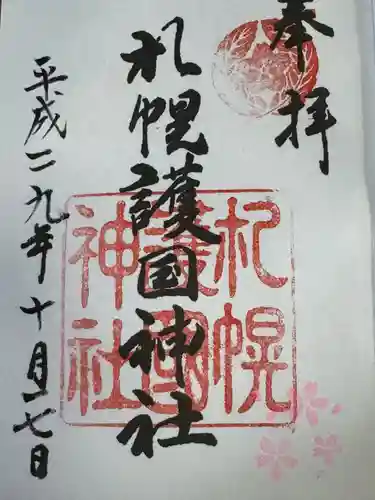 奉拝
札幌護国神社
札幌
護国
神社
平成二九年十月一七日